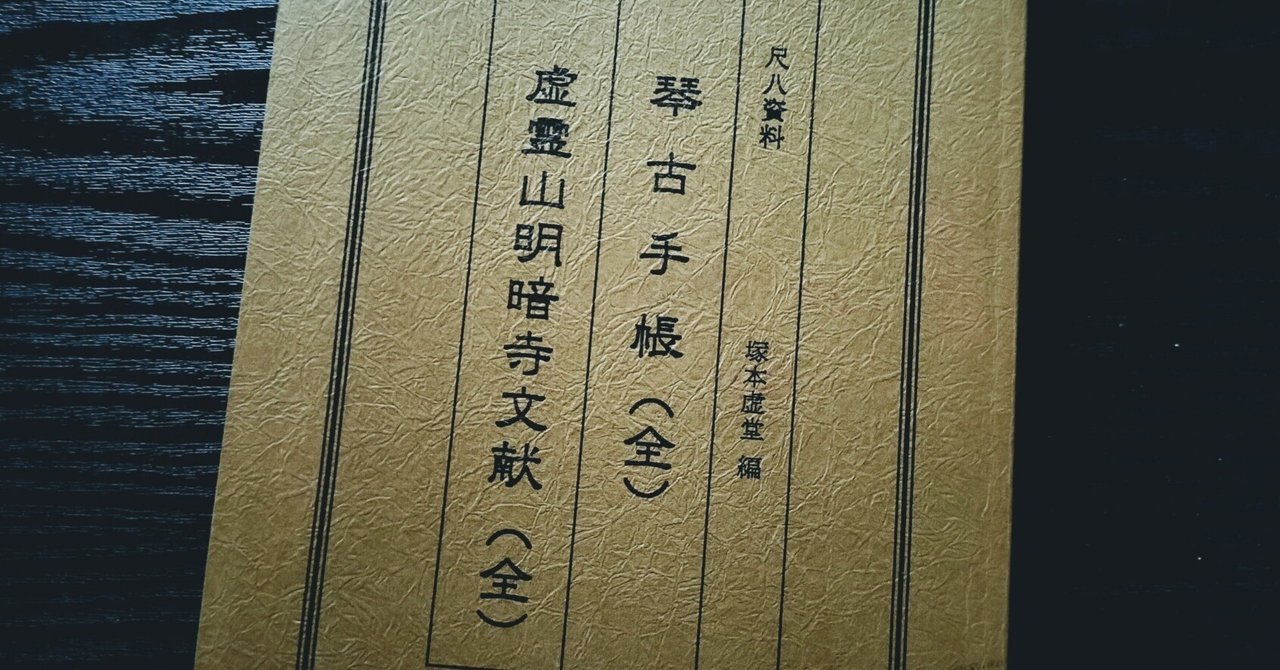 尺八資料
塚本虚堂 編
琴古手帳(全)
虚霊山明暗寺文献(全)